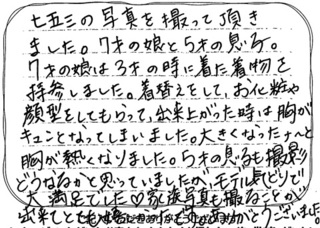 七五三の写真を撮って頂き
ました。7才の娘と5才の息子。
7才の娘は3才の時に着た着物を
持参しました。着替えをして、お化粧や
顔型をしてもらって、出来上がった時は胸が
キュンとなってしまいました。大きくなったナ〜と
胸が熱くなりました。5才の息子も撮影
どうなるかと思っていましたが、モデル気どりで
大満足でした♡家族写真も撮ることが
出来てとても嬉 ありがとうございました。